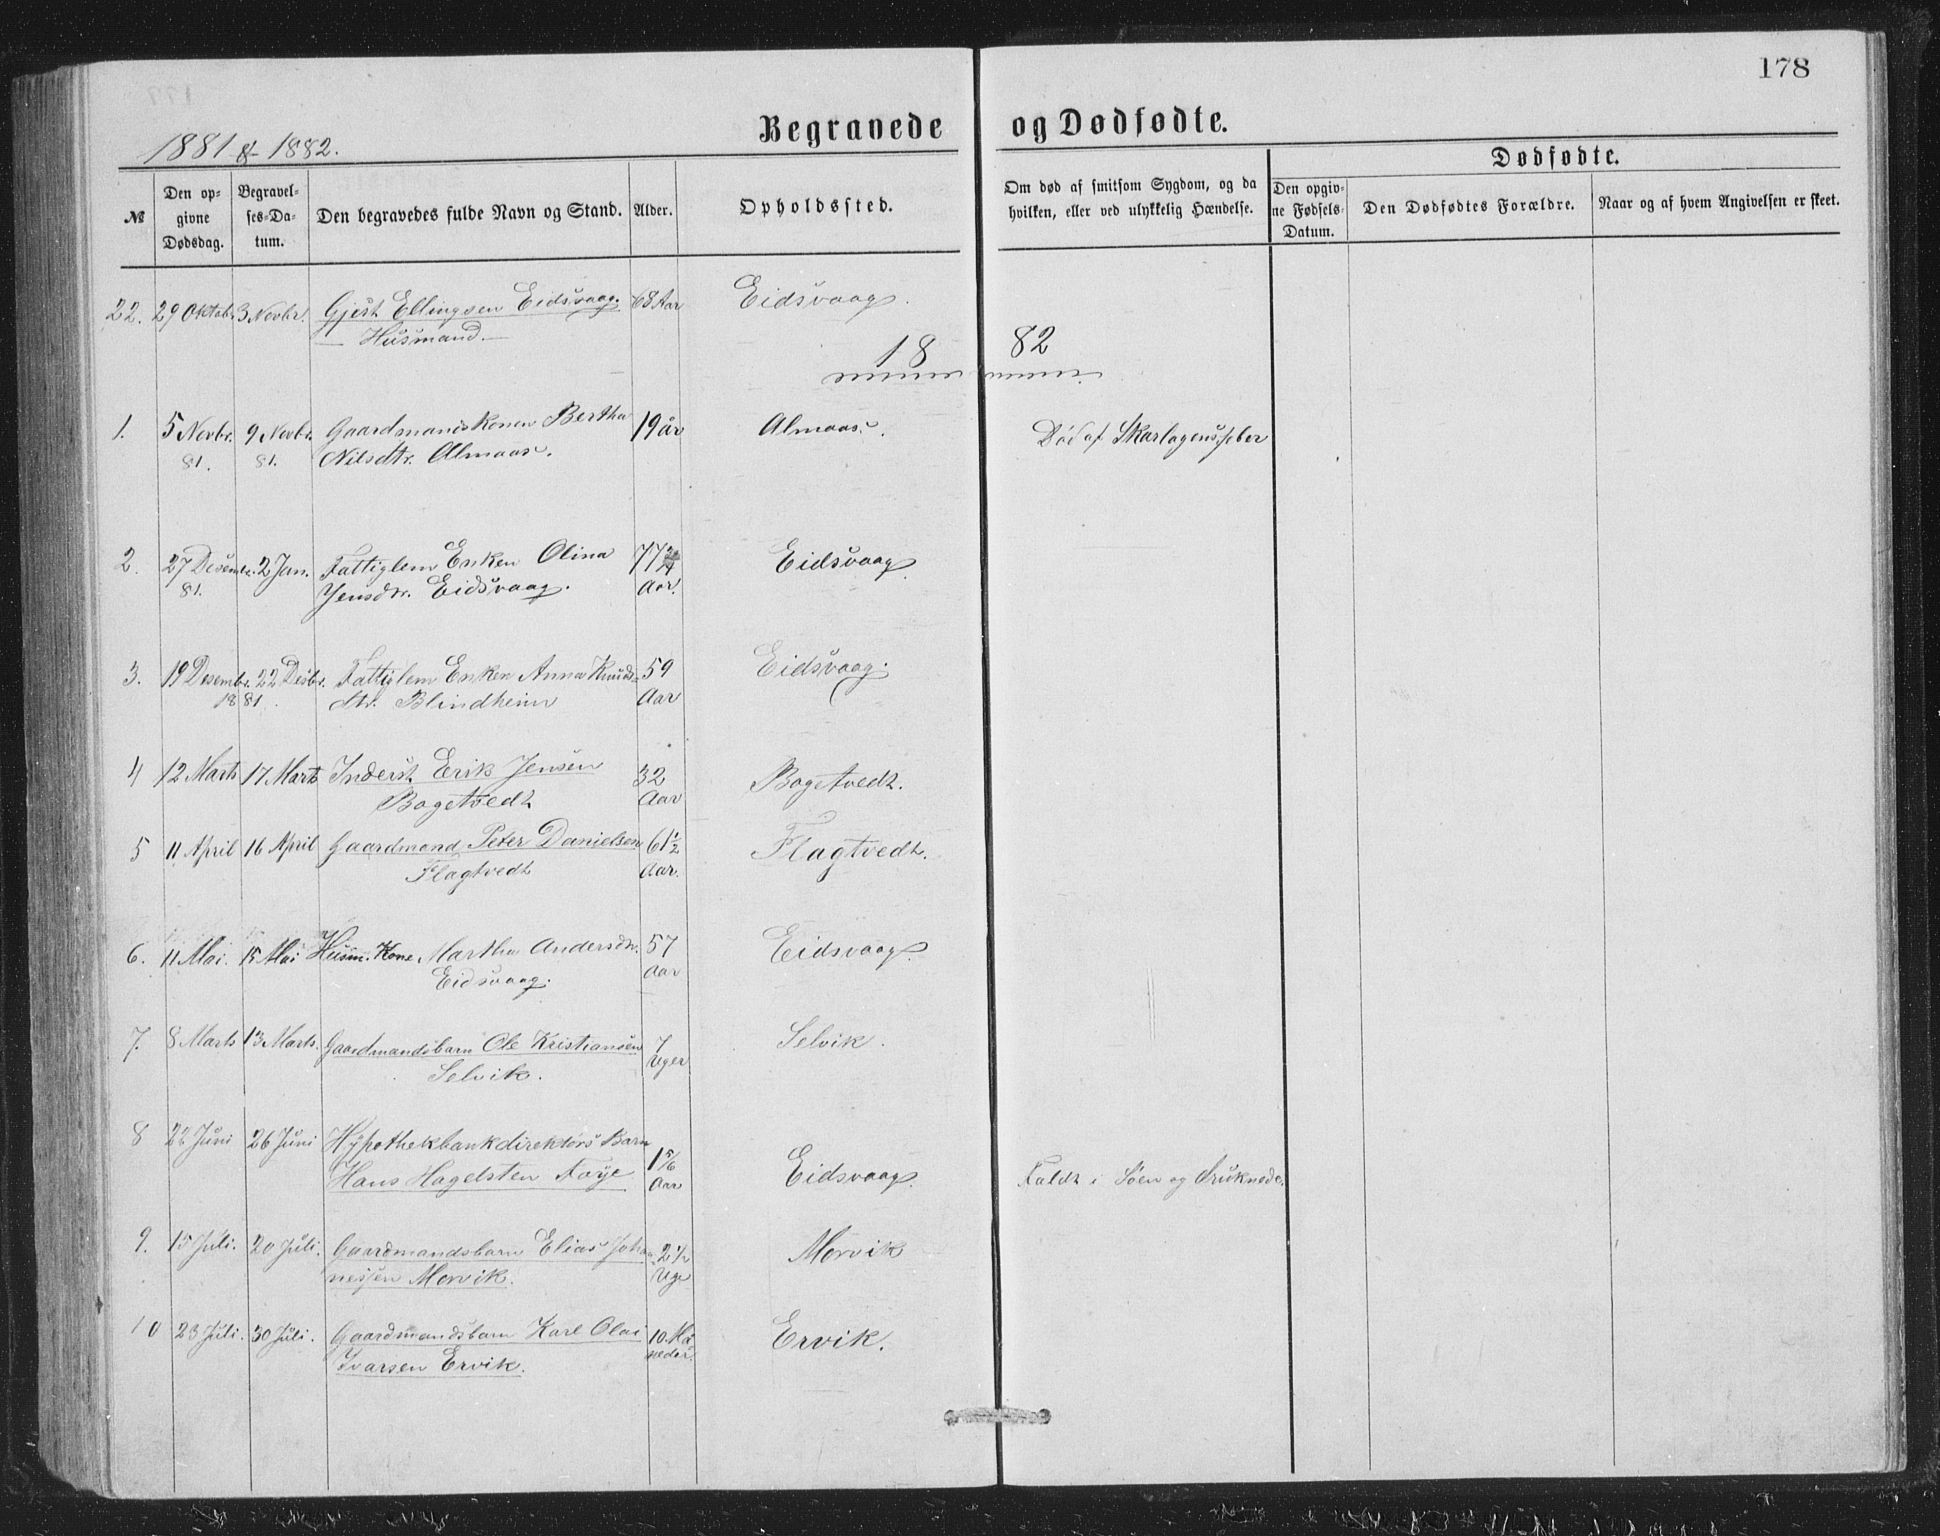 178
Begravede og Dødfødte.
1881 & 1882.
Dødfødte.
№
Den op-
givne
Dødsdag.
Begravel-
ses-Da-
tum.
Den begravedes fulde Navn og Stand.
Alder.
Opholdssted.
Om død af smitsom Sygdom, og da
hvilken, eller ved ulykkelig Hændelse.
Den opgiv-
ne Fødsels-
Datum.
Den Dødfødtes Forældre.
Naar og af hvem Angivelsen er skeet.
22. 29 Oktob. 3 Novbr. Gjert Ellingsen Eidsvaag. 68 Aar Eidsvaag.
Husmand.
18 82
1. 5 Novbr. 9 Novbr. Gaardmandskonen Bertha 19 år Almaas. Død af Skarlagensfeber
81. 81. Nilsdtr. Almaas.
2. 27 Desembr. 2 Jan. Fattiglem Enken Olina 77 Eidsvaag.
81. Jensdtr. Eidsvaag. Aar.
3. 19 Desembr. 22 Desbr. Fattiglem Enken Anna Knuds- 59 Eidsvaag.
1881. dtr. Blindheim Aar
4 12 Marts 17 Marts Inderst Erik Jensen 32 Bogetvedt.
Bogetvedt Aar
5 11 April 16 April Gaardmand Peter Danielsen 61 1/2 Flagtvedt.
Flagtvedt Aar.
6. 11 Mai. 15 Mai Husm. Kone Martha Andersdtr. 57 Eidsvaag.
Eidsvaag. Aar
7. 8 Marts 13 Marts. Gaardmandsbarn Ole Kristiansen 7 Selvik.
Selvik. Uger
8 22 Juni 26 Juni Hypothekbankdirektørs Barn 1 5/6 Eidsvaag. Faldt i Søen og druknede.
Hans Hagelsten Foye Aar
9. 15 Juli. 20 Juli. Gaardmandsbarn Elias Johan- 2 1/2 Morvik
nessen Morvik. Uge
10 23 Juli. 30 Juli. Gaardmandsbarn Karl Olai 10 Maa- Ervik.
Ivarsen Ervik. neder.